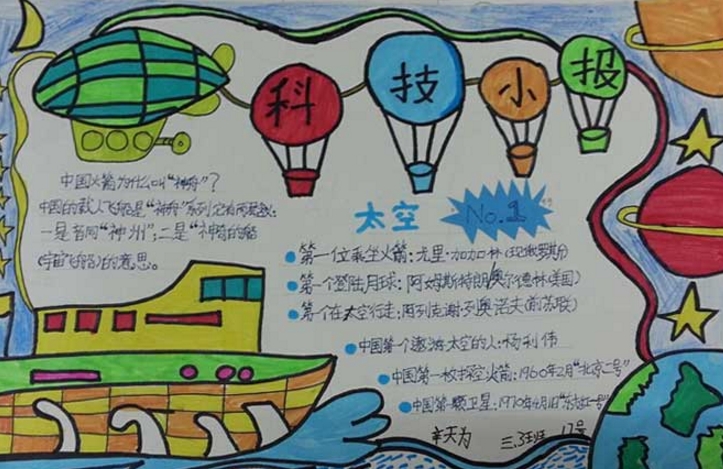 科技小报
中国火箭为什么叫“神舟”?
中国的载人飞船是“神舟”系列它有两层意:
一是音同“神州”;二是“神奇的船
(宇宙飞船)的意思。
太空 No.1
第一位乘坐火箭:尤里·加加林(现俄罗斯)
第一个登陆月球:阿姆斯特朗奥尔德林(美国)
第一个在太空行走:阿列克谢·列奥诺夫(前苏联)
中国第一个遨游太空的人:杨利伟
中国第一枚探空火箭:1960年2月“北京二号”
中国第一颗卫星:1970年4月1日“东方红一号”
辛天为 三.3班 17号